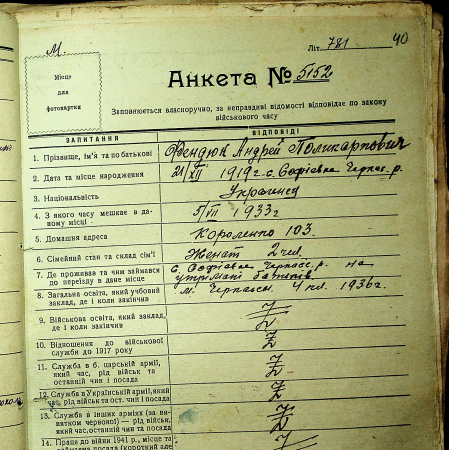 М.
Літ. 781
40
Місце
для
фотокартки
Анкета № 5152
Заповнюється власноручно, за неправдиві відомості відповідає по закону
військового часу
ЗАПИТАННЯ ВІДПОВІДІ
1. Прізвище, ім'я та по батькові Фендюк Андрей Поликарпович
2. Дата та місце народження 21/XII 1919 г. с. Софіевка Черкас. р.
3. Національність Украинец
4. З якого часу мешкає в даному місці 5/VII 1933 г
5. Домашня адреса Короленко 103.
6. Сімейний стан та склад сім'ї Женат 2 чел.
7. Де проживав та чим займався
до переїзду в дане місце С. Софіевка Черкасс. р. на
утримані батьків
8. Загальна освіта, який учбовий
заклад, де і коли закінчив м. Черкассы 4 кл. 1936 г.
9. Військова освіта, який заклад,
де і коли закінчив
10. Відношення до військової
служби до 1917 року
11. Служба в б. царській армії,
який час, рід військ та
останній чин і посада
12. Служба в Українській армії, який
час, рід військ та ост. чин і посада
13. Служба в інших арміях (за винятком червоної) — рід військ,
який час, останній чин та посада
14. Праця до війни 1941 р., місце та